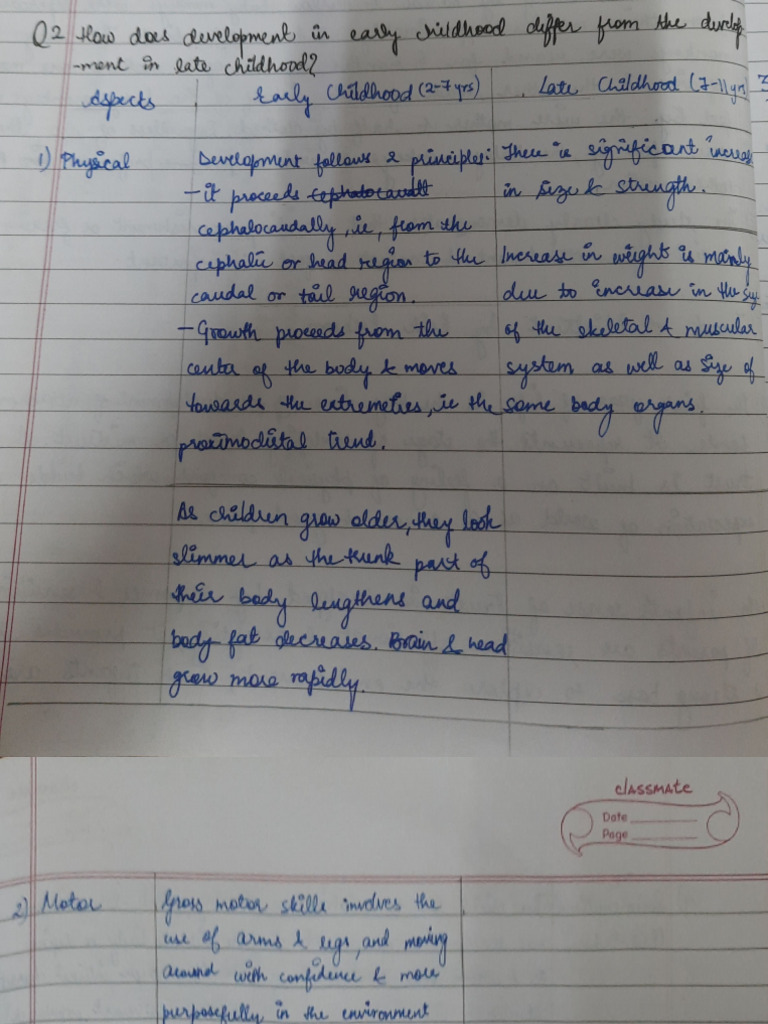 Q2 How does development in early childhood differ from the develop
-ment in late childhood?
Aspects
Early Childhood (2-7 yrs)
Late Childhood (7-11 yr
1) Physical
Development follows 2 principles:
- it proceeds cephalocaudall
cephalocaudally, ie, from the
cephalic or head region to the
caudal or tail region.
- Growth proceeds from the
center of the body & moves
towards the extremeties, ie the
proximodistal trend.
As children grow older, they look
slimmer as the trunk part of
their body lengthens and
body fat decreases. Brain & head
grow more rapidly.
There is significant increas
in size & strength.
Increase in weight is mainly
due to increase in the
of the skeletal & muscular
system as well as size of
some body organs.
classmate
Date
Page
2) Motor
Gross motor skills involves the
use of arms & legs, and moving
around with confidence & more
purposefully in the environment